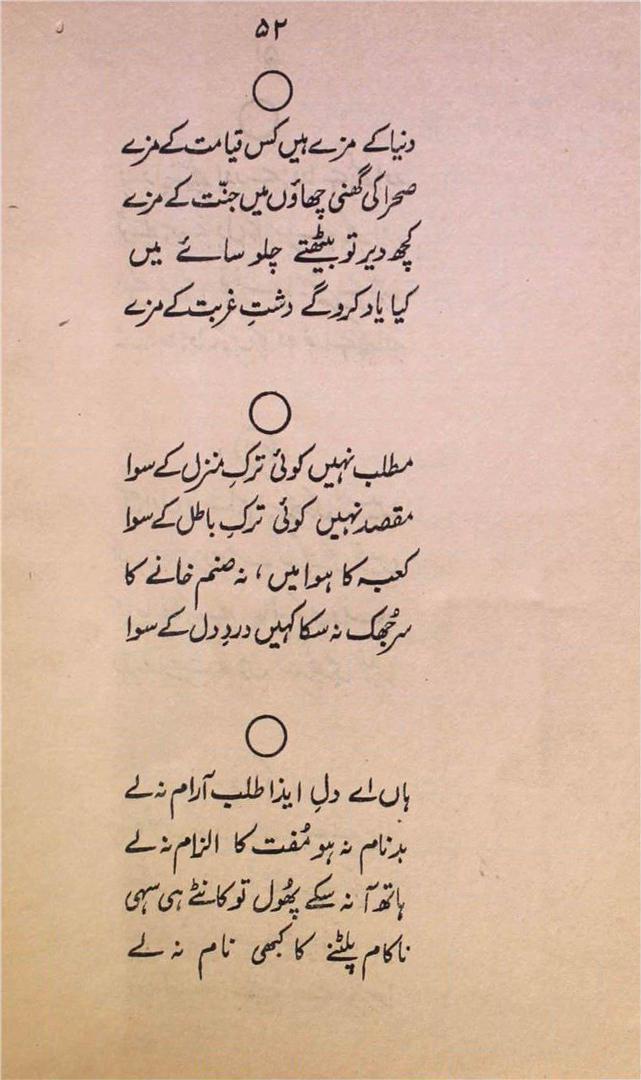 ۵۲
دنیا کے مزے ہیں کس قیامت کے مزے
صحرا کی گھنی چھاؤں میں جنّت کے مزے
کچھ دیر تو بیٹھتے چلو سائے میں
کیا یاد کرو گے دشتِ غربت کے مزے
مطلب نہیں کوئی ترکِ منزل کے سوا
مقصد نہیں کوئی ترکِ باطل کے سوا
کعبہ کا ہوا میں، نہ صنم خانے کا
سر جُھک نہ سکا کہیں درِ دل کے سوا
ہاں اے دلِ ایذا طلب آرام نہ لے
بدنام نہ ہو مُفت کا الزام نہ لے
ہاتھ آ نہ سکے پھُول تو کانٹے ہی سہی
ناکام پلٹنے کا کبھی نام نہ لے